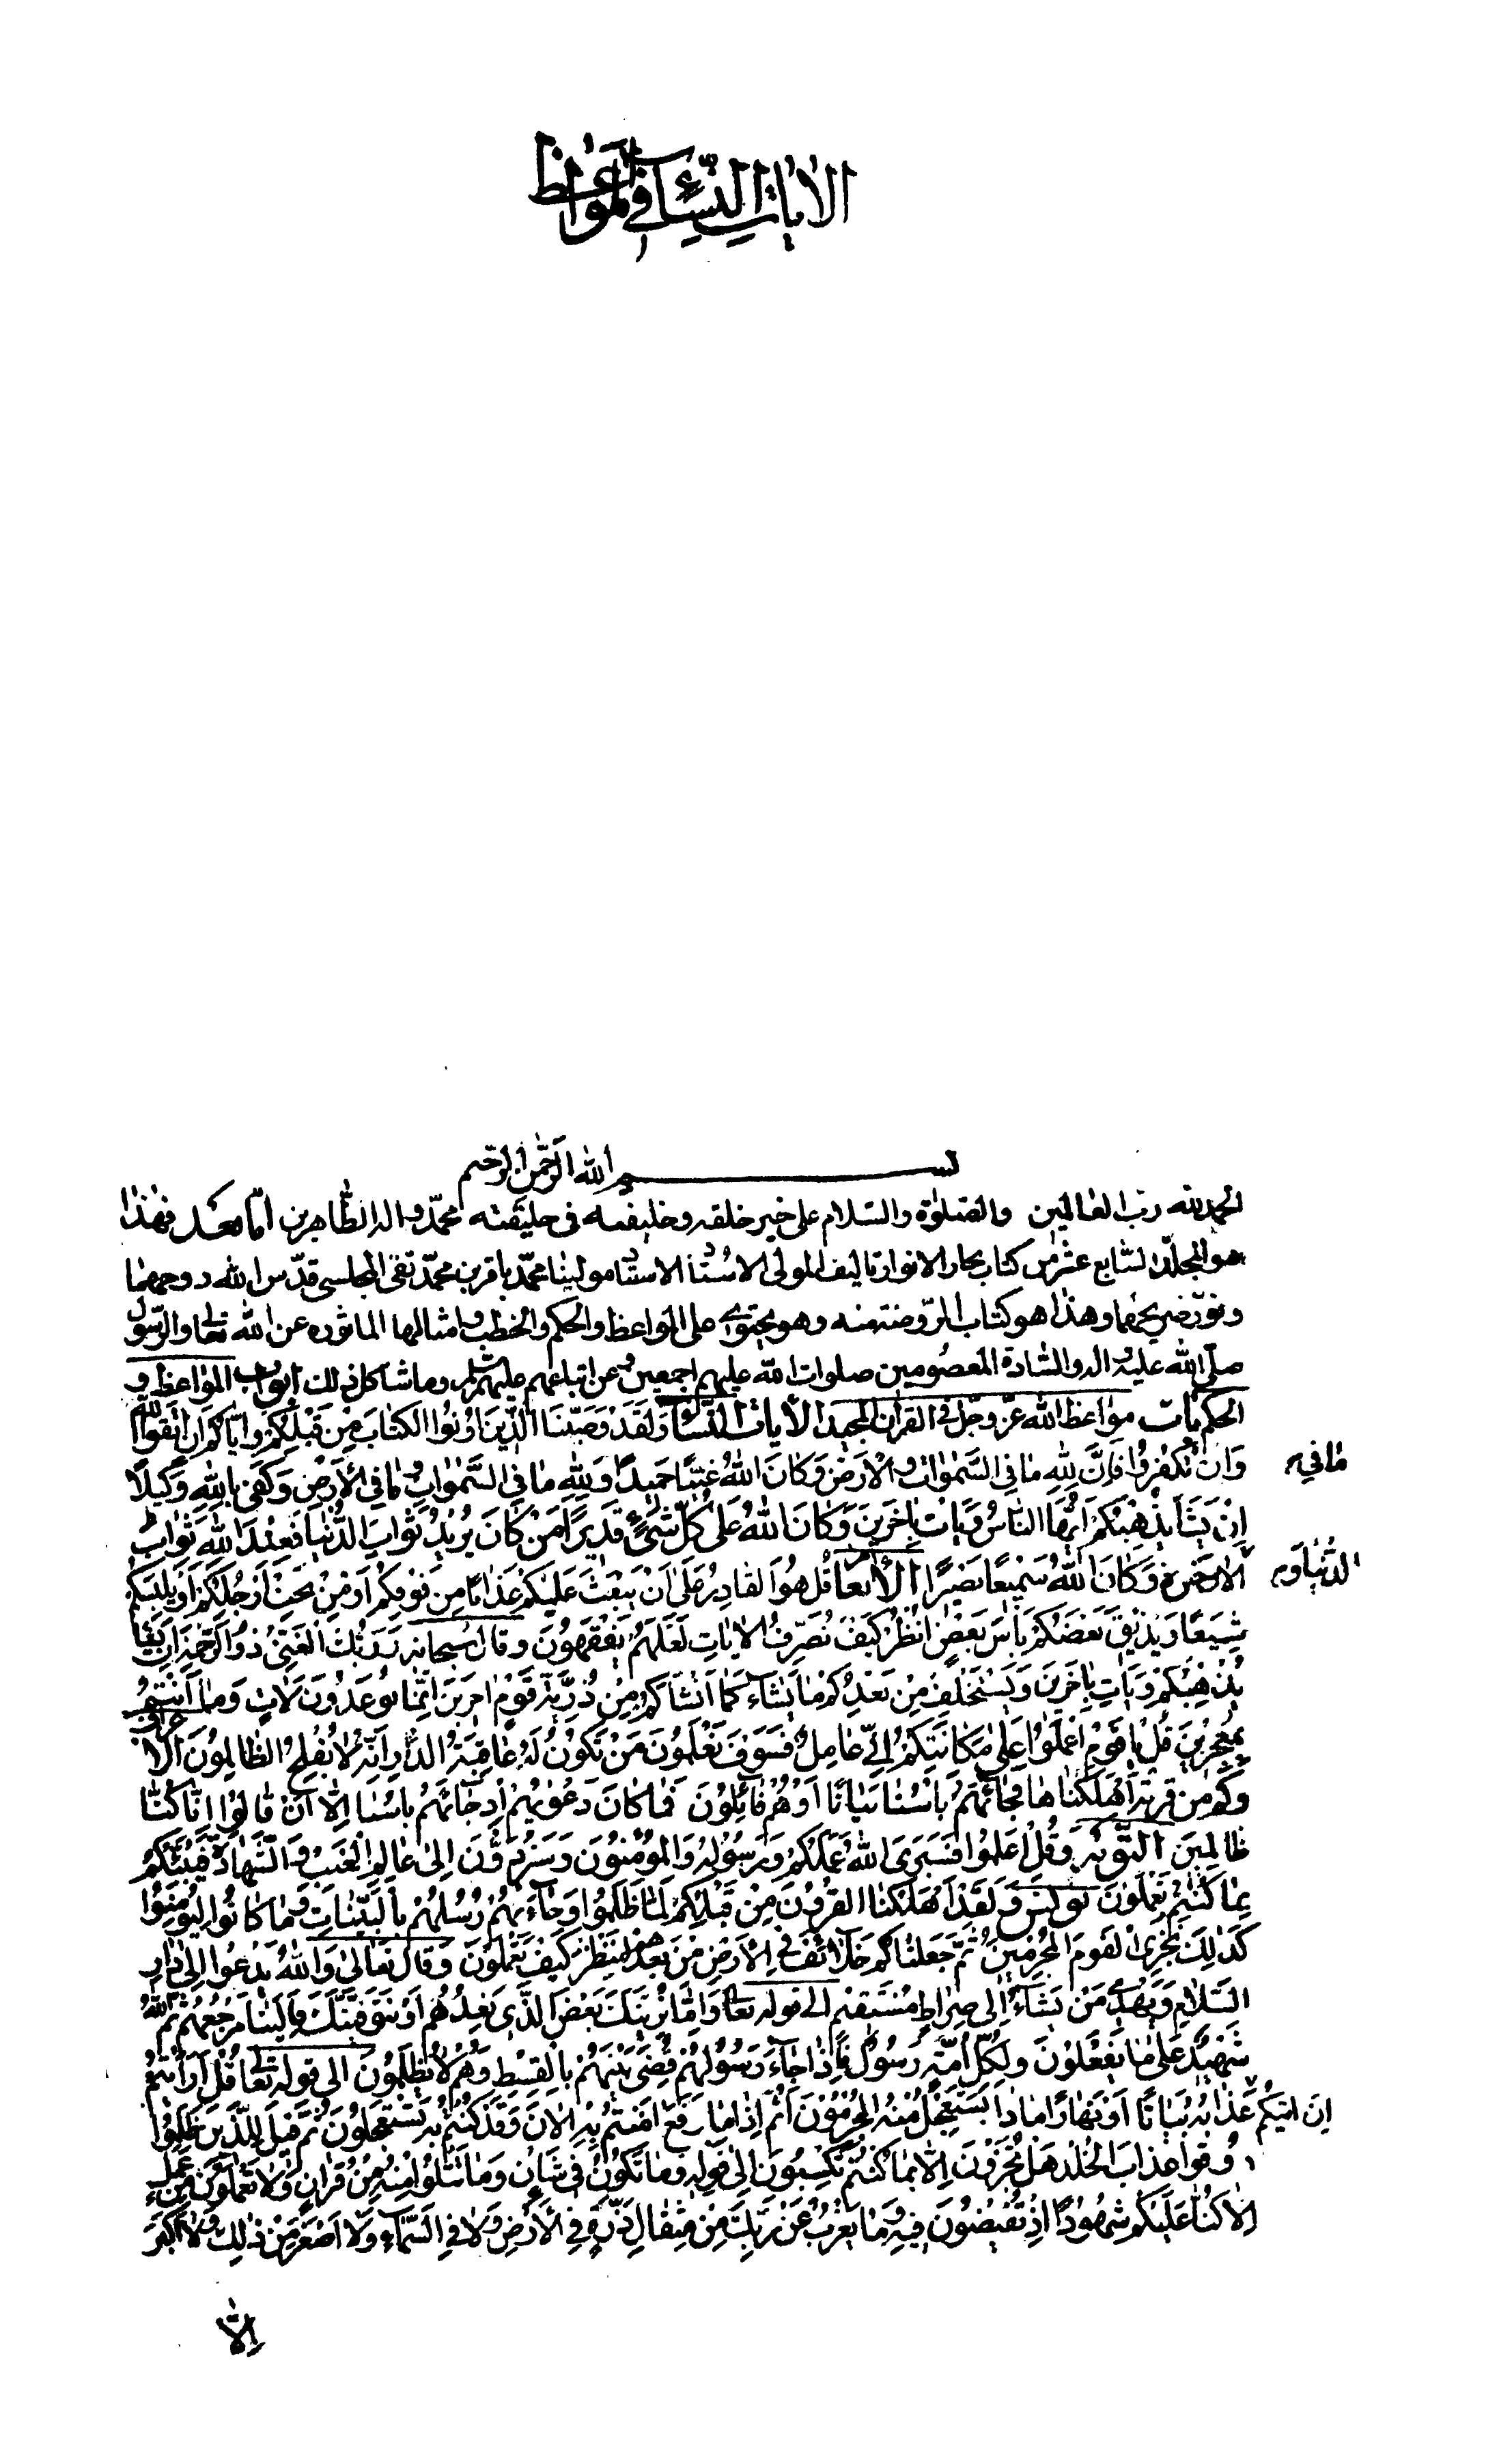 الايات النساء في المواعظ
بسم الله الرحمن الرحيم
الحمد لله رب العالمين والصلوة والسلام على خير خلقه وخليفته فى خليقته محمد واله الطاهرين اما بعد فهذا
هو المجلد السابع عشر من كتاب بحار الانوار تاليف المولى الاستاذ الاستناد مولينا محمد باقر بن محمد تقى المجلسى قدس الله روحهما
ونور ضريحهما وهذا هو كتاب الروضة منه وهو يحتوى على المواعظ والحكم والخطب وامثالها الماثورة عن الله تعالى والرسول
صلى الله عليه واله والسادة المعصومين صلوات الله عليهم اجمعين وعن اتباعهم وما شاكل ذلك ابواب المواعظ و
الحكم باب مواعظ الله عز وجل فى القران المجيد الايات النساء وَلَقَدْ وَصَّيْنَا الَّذِينَ اُوتُوا الْكِتَابَ مِنْ قَبْلِكُمْ وَاِيَّاكُمْ اَنِ اتَّقُوا اللهَ
وَاِنْ تَكْفُرُوا فَاِنَّ لِلّهِ مَا فِي السَّمٰوَاتِ وَ مَا فِي الْاَرْضِ وَكَانَ اللهُ غَنِيًّا حَمِيدًا وَلِلّهِ مَا فِي السَّمٰوَاتِ وَمَا فِي الْاَرْضِ وَكَفىٰ بِاللهِ وَكِيلًا
اِنْ يَشَأْ يُذْهِبْكُمْ اَيُّهَا النَّاسُ وَيَاْتِ بِاٰخَرِينَ وَكَانَ اللهُ عَلىٰ كُلِّ شَيْءٍ قَدِيرًا مَنْ كَانَ يُرِيدُ ثَوَابَ الدُّنْيَا فَعِنْدَ اللهِ ثَوَابُ
الدُّنْيَا وَ الْاٰخِرَةِ وَكَانَ اللهُ سَمِيعًا بَصِيرًا الانعام قُلْ هُوَ الْقَادِرُ عَلىٰ اَنْ يَبْعَثَ عَلَيْكُمْ عَذَابًا مِنْ فَوْقِكُمْ اَوْ مِنْ تَحْتِ اَرْجُلِكُمْ اَوْ يَلْبِسَكُمْ
شِيَعًا وَيُذِيقَ بَعْضَكُمْ بَاْسَ بَعْضٍ انْظُرْ كَيْفَ نُصَرِّفُ الْاٰيَاتِ لَعَلَّهُمْ يَفْقَهُونَ وقال سبحانه رَبُّكَ الْغَنِيُّ ذُو الرَّحْمَةِ اِنْ يَشَأْ
يُذْهِبْكُمْ وَيَاْتِ بِاٰخَرِينَ وَيَسْتَخْلِفْ مِنْ بَعْدِكُمْ مَا يَشَاءُ كَمَا اَنْشَاَكُمْ مِنْ ذُرِّيَّةِ قَوْمٍ اٰخَرِينَ اِنَّمَا تُوعَدُونَ لَاٰتٍ وَمَا اَنْتُمْ
بِمُعْجِزِينَ قُلْ يَا قَوْمِ اعْمَلُوا عَلىٰ مَكَانَتِكُمْ اِنِّي عَامِلٌ فَسَوْفَ تَعْلَمُونَ مَنْ تَكُونُ لَهُ عَاقِبَةُ الدَّارِ اِنَّهُ لَا يُفْلِحُ الظَّالِمُونَ الاعراف
وَكَمْ مِنْ قَرْيَةٍ اَهْلَكْنَاهَا فَجَائَهُمْ بَاْسُنَا بَيَاتًا اَوْ هُمْ قَائِلُونَ فَمَا كَانَ دَعْوٰيهُمْ اِذْ جَائَهُمْ بَاْسُنَا اِلَّا اَنْ قَالُوا اِنَّا كُنَّا
ظَالِمِينَ التوبة وَقُلِ اعْمَلُوا فَسَيَرَى اللهُ عَمَلَكُمْ وَرَسُولُهُ وَالْمُؤْمِنُونَ وَسَتُرَدُّونَ اِلىٰ عَالِمِ الْغَيْبِ وَالشَّهَادَةِ فَيُنَبِّئُكُمْ
بِمَا كُنْتُمْ تَعْمَلُونَ يونس وَلَقَدْ اَهْلَكْنَا الْقُرُونَ مِنْ قَبْلِكُمْ لَمَّا ظَلَمُوا وَجَاءَتْهُمْ رُسُلُهُمْ بِالْبَيِّنَاتِ وَمَا كَانُوا لِيُؤْمِنُوا
كَذٰلِكَ نَجْزِى الْقَوْمَ الْمُجْرِمِينَ ثُمَّ جَعَلْنَاكُمْ خَلَائِفَ فِي الْاَرْضِ مِنْ بَعْدِهِمْ لِنَنْظُرَ كَيْفَ تَعْمَلُونَ وقال تعالى وَاللهُ يَدْعُوا اِلىٰ دَارِ
السَّلَامِ وَيَهْدِي مَنْ يَشَاءُ اِلىٰ صِرَاطٍ مُسْتَقِيمٍ الى قوله تعالى وَاِمَّا نُرِيَنَّكَ بَعْضَ الَّذِي نَعِدُهُمْ اَوْ نَتَوَفَّيَنَّكَ فَاِلَيْنَا مَرْجِعُهُمْ ثُمَّ اللهُ
شَهِيدٌ عَلىٰ مَا يَفْعَلُونَ وَلِكُلِّ اُمَّةٍ رَسُولٌ فَاِذَا جَاءَ رَسُولُهُمْ قُضِيَ بَيْنَهُمْ بِالْقِسْطِ وَهُمْ لَا يُظْلَمُونَ الى قوله تعالى قُلْ اَرَاَيْتُمْ
اِنْ اَتٰيكُمْ عَذَابُهُ بَيَاتًا اَوْ نَهَارًا مَاذَا يَسْتَعْجِلُ مِنْهُ الْمُجْرِمُونَ اَثُمَّ اِذَا مَا وَقَعَ اٰمَنْتُمْ بِهِ اَلْاٰنَ وَقَدْ كُنْتُمْ بِهِ تَسْتَعْجِلُونَ ثُمَّ قِيلَ لِلَّذِينَ ظَلَمُوا
ذُوقُوا عَذَابَ الْخُلْدِ هَلْ تُجْزَوْنَ اِلَّا بِمَا كُنْتُمْ تَكْسِبُونَ الى قوله وَمَا تَكُونُ فِي شَأْنٍ وَمَا تَتْلُوا مِنْهُ مِنْ قُرْاٰنٍ وَلَا تَعْمَلُونَ مِنْ عَمَلٍ
اِلَّا كُنَّا عَلَيْكُمْ شُهُودًا اِذْ تُفِيضُونَ فِيهِ وَمَا يَعْزُبُ عَنْ رَبِّكَ مِنْ مِثْقَالِ ذَرَّةٍ فِي الْاَرْضِ وَلَا فِي السَّمَاءِ وَلَا اَصْغَرَ مِنْ ذٰلِكَ وَلَا اَكْبَرَ
اِلَّا